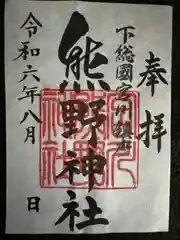 奉拝
下総國宮
熊野神社
令和六年八月 日